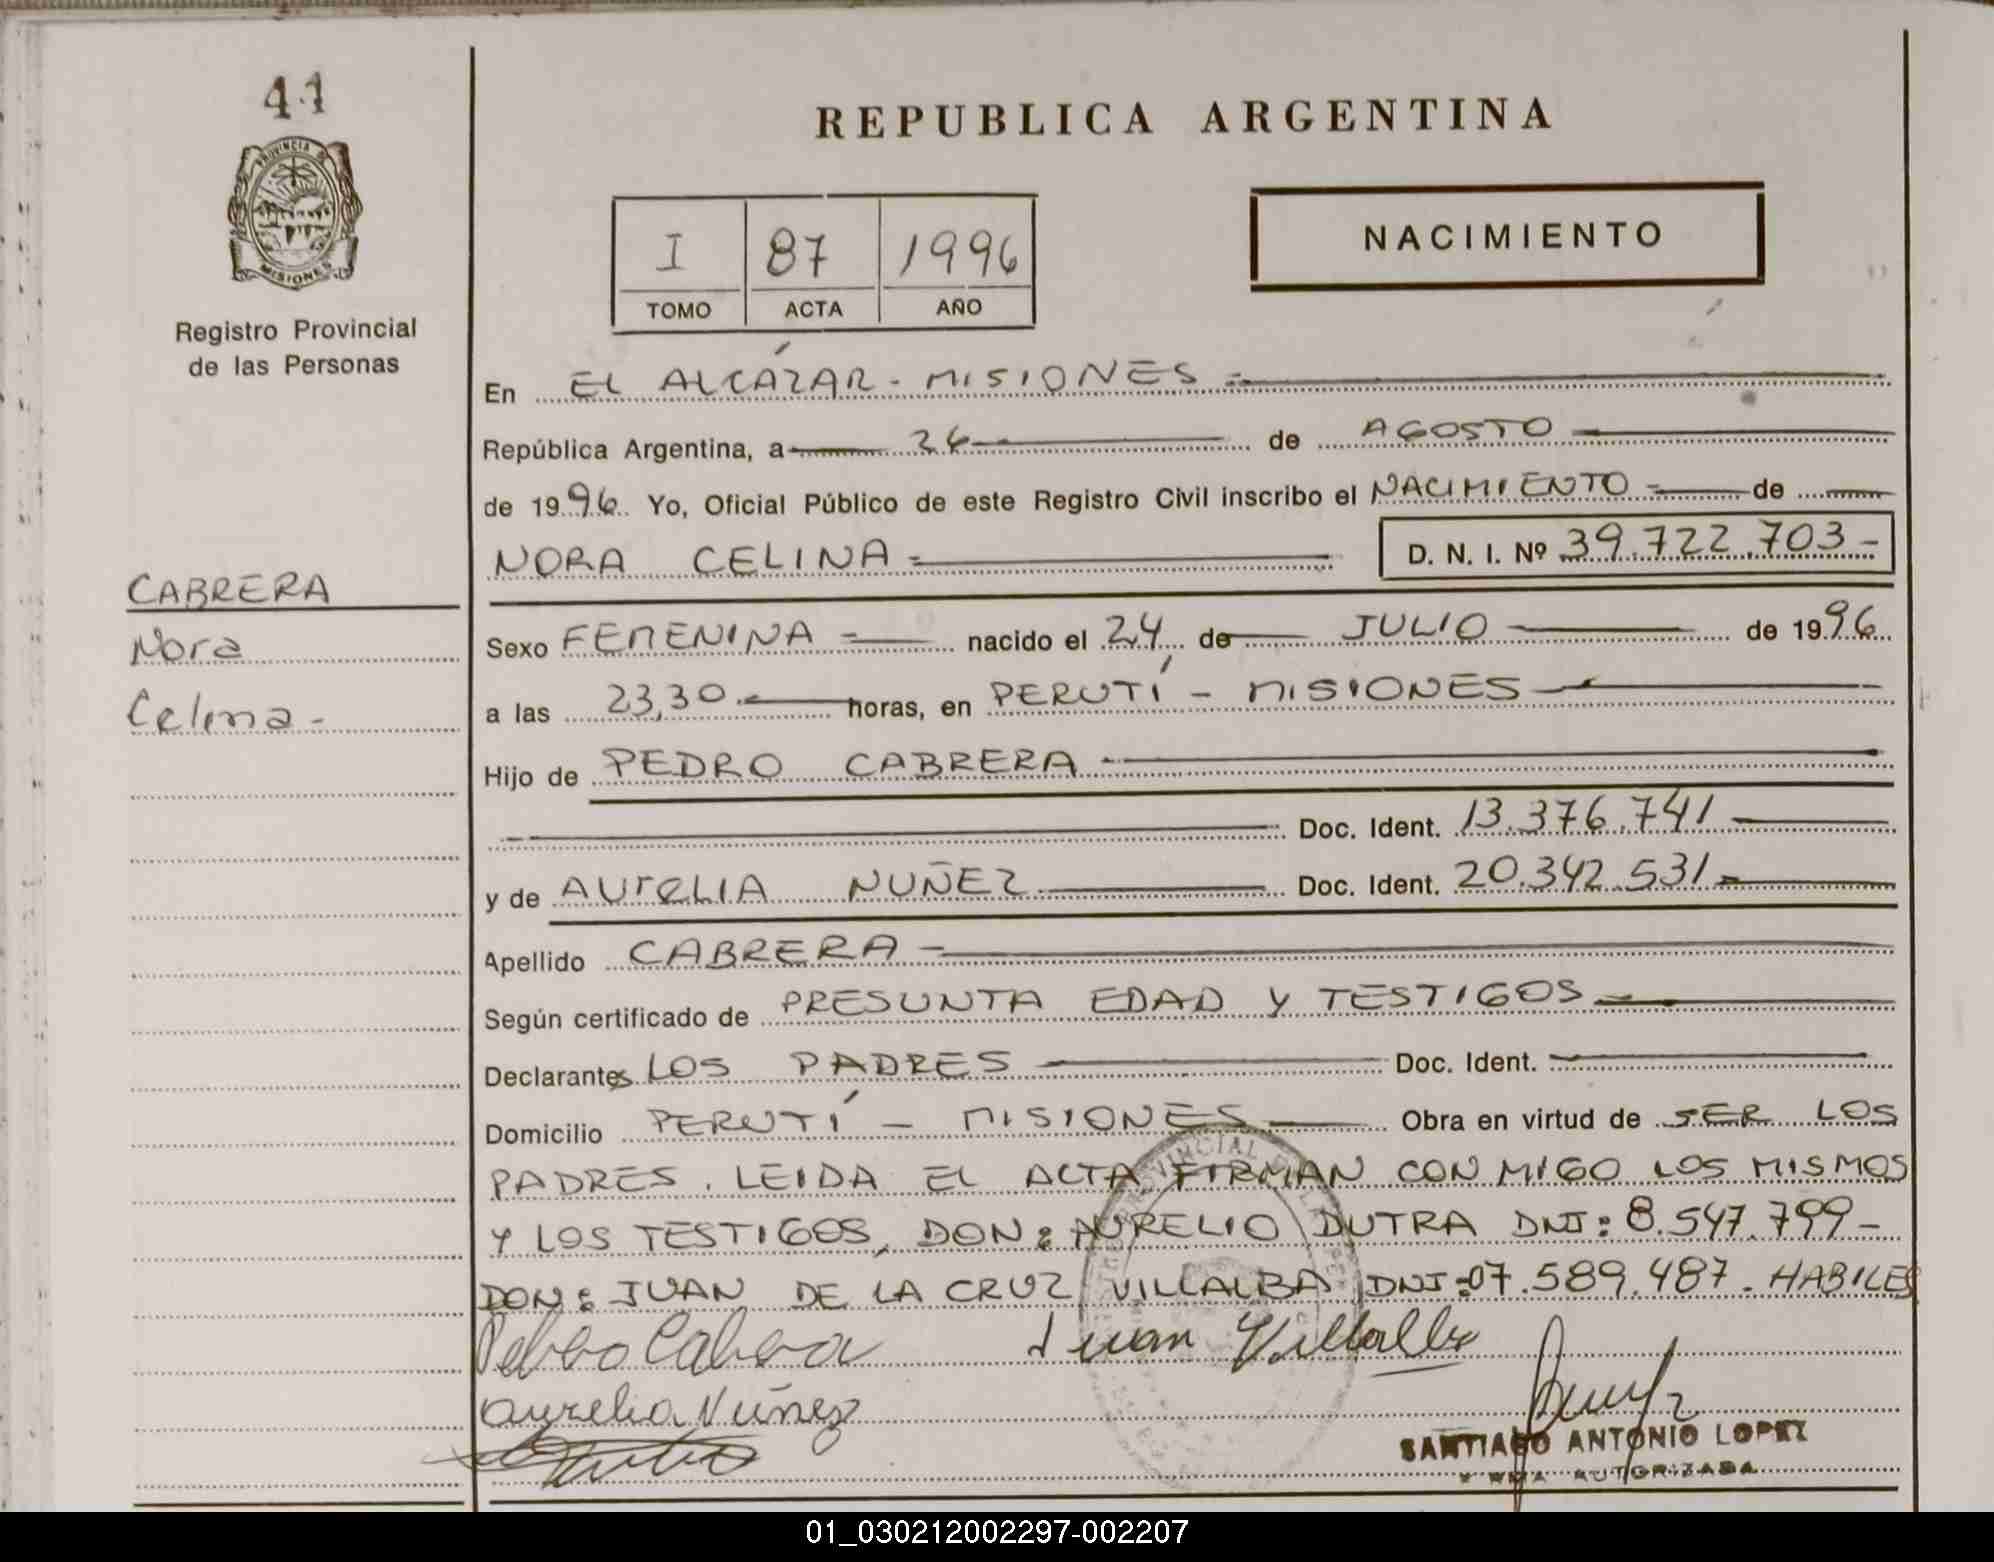 41
PROVINCIA DE
MISIONES
Registro Provincial
de las Personas
CABRERA
Nora
Celina -
REPUBLICA ARGENTINA
I 87 1996
TOMO ACTA AÑO
NACIMIENTO
En EL ALCÁZAR - MISIONES
República Argentina, a 26 de AGOSTO
de 1996 Yo, Oficial Público de este Registro Civil inscribo el NACIMIENTO de
NORA CELINA D. N. I. Nº 39.722.703-
Sexo FEMENINA nacido el 24 de JULIO de 1996
a las 23,30 horas, en PERUTÍ - MISIONES
Hijo de PEDRO CABRERA
Doc. Ident. 13.376.741
y de AURELIA NUÑEZ Doc. Ident. 20.342.531
Apellido CABRERA
Según certificado de PRESUNTA EDAD Y TESTIGOS
Declarantes LOS PADRES Doc. Ident.
Domicilio PERUTÍ - MISIONES Obra en virtud de SER LOS
PADRES. LEIDA EL ACTA FIRMAN CON MIGO LOS MISMOS
Y LOS TESTIGOS, DON: AURELIO DUTRA DNI: 8.547.799-
DON: JUAN DE LA CRUZ VILLALBA DNI: 07.589.487. HABILES
Pedro Cabrera Juan Villalba
Aurelia Núñez
SANTIAGO ANTONIO LOPEZ
FIRMA AUTORIZADA
01_030212002297-002207